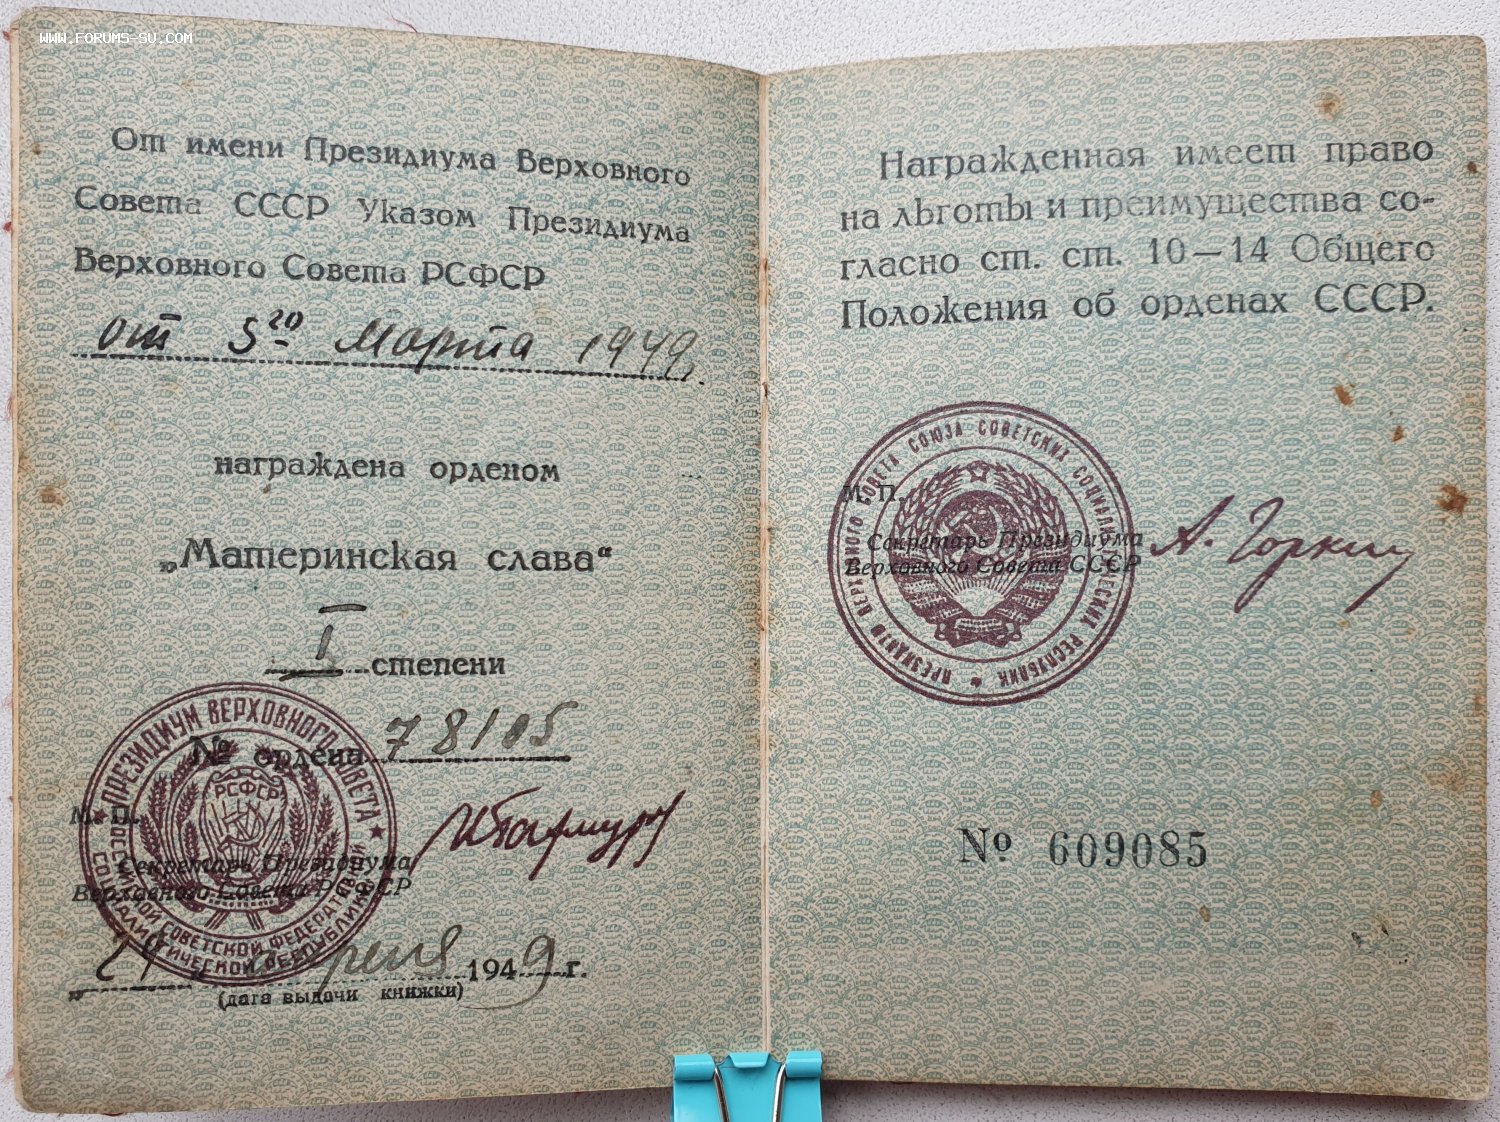 WWW.FORUMS-SU.COM
От имени Президиума Верховного
Совета СССР Указом Президиума
Верховного Совета РСФСР
от 5го Марта 1949
награждена орденом
„Материнская слава“
I степени
№ ордена 78105
ПРЕЗИДИУМ ВЕРХОВНОГО СОВЕТА
РОССИЙСКОЙ СОВЕТСКОЙ ФЕДЕРАТИВНОЙ
СОЦИАЛИСТИЧЕСКОЙ РЕСПУБЛИКИ
РСФСР
М. П.
Секретарь Президиума
Верховного Совета РСФСР
апреля 1949 г.
(дата выдачи книжки)
Награжденная имеет право
на льготы и преимущества со-
гласно ст. ст. 10—14 Общего
Положения об орденах СССР.
ПРЕЗИДИУМ ВЕРХОВНОГО СОВЕТА СОЮЗА СОВЕТСКИХ СОЦИАЛИСТИЧЕСКИХ РЕСПУБЛИК
М. П.
Секретарь Президиума
Верховного Совета СССР
А. Горкин
№ 609085